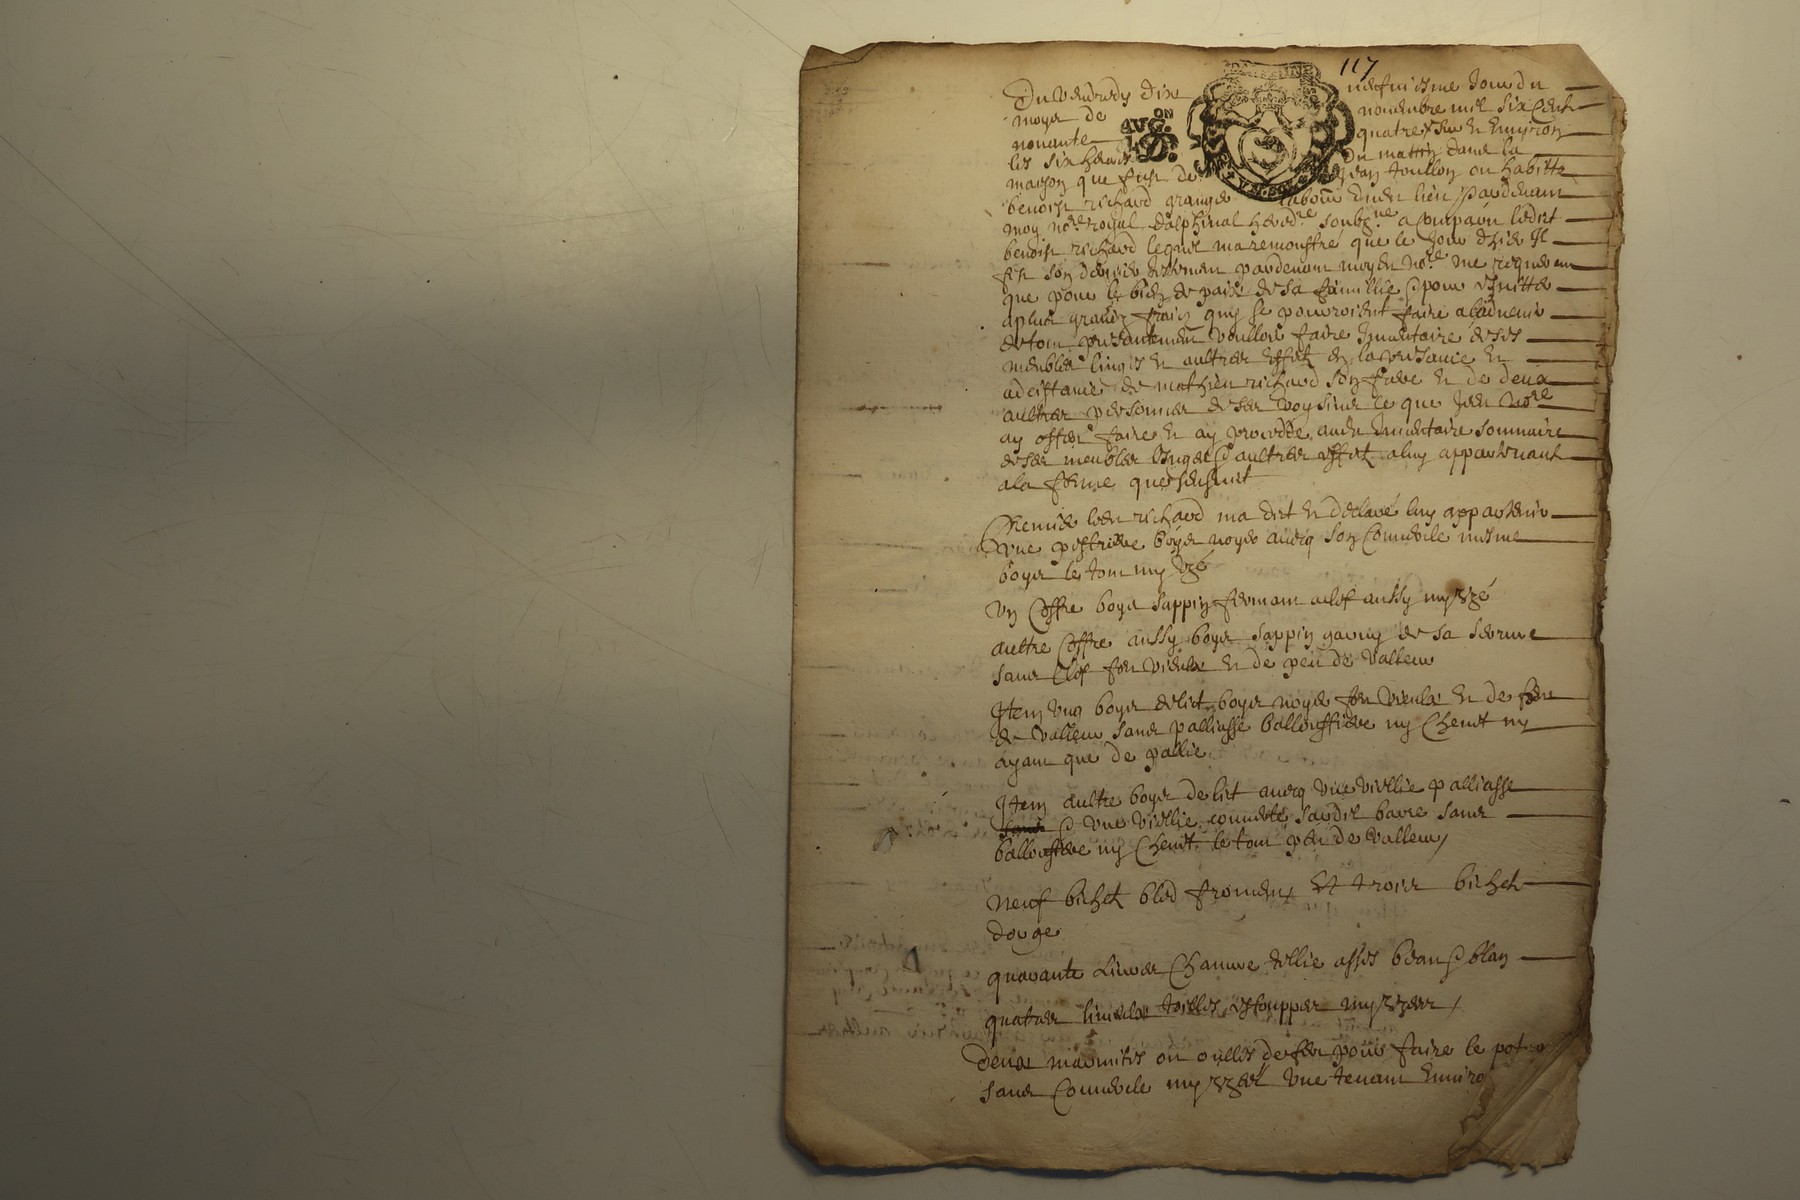 117
Du vendredy dix neufviesme jour du
moys de novembre mil six cent
nonante quatre sur et environ
les six heures du mattin dans la
maison que fust de Jean toullon ou habitte
benoist richard granger labour dudit lieu pardevant
moy no.re royal dalphinal hered.re soubz.ne a comparu ledit
benoist richard lequel ma remonstré que le jour dhier Il
fist son dernier testament pardevant moydit No.re me requerant
que pour le bien de paix de sa famillie & pour esvitter
a plus grandz fraiz quy se pourroient faire a ladvenir
de tout presantement voulloir faire Inventaire de ses
meubles linges et aultres effetz en la presance et
adcistance de mathieu richard son frere et de deux
aultres personnes de ses voysins ce que Jedit No.re
ay offert faire et ay procedde audit Inventaire sommaire
de ses meubles linges & aultres effetz a luy appartenant
a la forme que sensuit
Premier ledit richard ma dit et declaré luy appartenir
une pestriere boys noyer avecq son couvercle mesme
boys le tout my uzé
un coffre boys sappin fermant a clef aussy my uzé
aultre coffre aussy boys sappin garny de sa serrure
sans clef fort vieulx et de peu de valleur
Item ung boys de lict boys noyer fort vieulx et de peu
de valleur sans palliasse balloufflere ny chevet ny
ayant que de pallie
Item aultre boys de lict avecq une viellie palliasse
& une viellie couverte sardil barre sans
balloufflere ny chevet le tout peu de valleur
Neuf bichetz bled froment et trois bichetz
dorge
quarante livres chanvre tellie asses beau & blan
quatres linceulx toilles estouppes my uzes
Deux marmites ou oulles de fer pour faire le pot
sans couvercle my uzees une tenant enviro